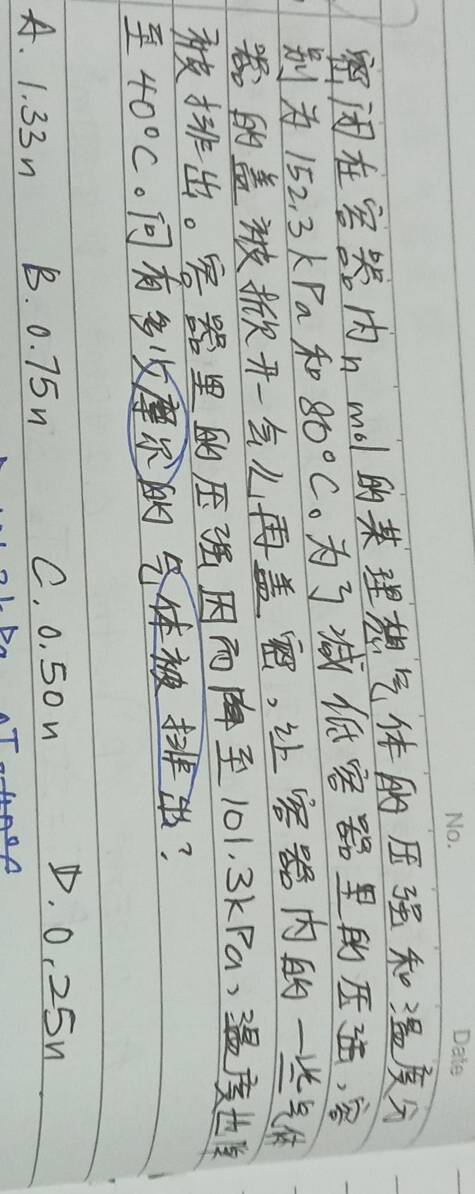 No.
Date
密闭在容器内n mol的某理想气体的压强和温度分
别为152.3kPa和80°C。为了减低容器里的压强,容
器的盖被掀开一会儿再盖密,让容器内的一些气体
被排出。容器里的压强因而降至101.3kPa、温度也降
至40°C。问有多少摩尔的气体被排出?
A. 1.33n B. 0.75n C. 0.50n D. 0.25n